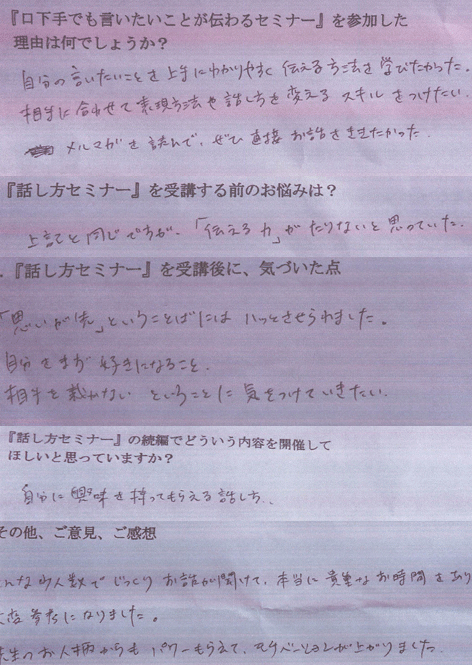 『口下手でも言いたいことが伝わるセミナー』を参加した
理由は何でしょうか？
自分の言いたいことを上手にわかりやすく伝える方法を学びたかった。
相手に合わせて表現方法や話し方を変えるスキルをつけたい。
メルマガを読んで、ぜひ直接お話をききたかった。
『話し方セミナー』を受講する前のお悩みは？
上記と同じですが、「伝える力」がたりないと思っていた。
.『話し方セミナー』を受講後に、気づいた点
「思いが先」ということばにはハッとさせられました。
自分をまず好きになること、
相手を裁かないということに気をつけていきたい。
『話し方セミナー』の続編でどういう内容を開催して
ほしいと思っていますか？
自分に興味を持ってもらえる話し方、
その他、ご意見、ご感想
んな少人数でじっくりお話が聞けて、本当に貴重なお時間をあり
変参考になりました。
先生のお人柄からもパワーもらえて、モチベーションが上がりました。